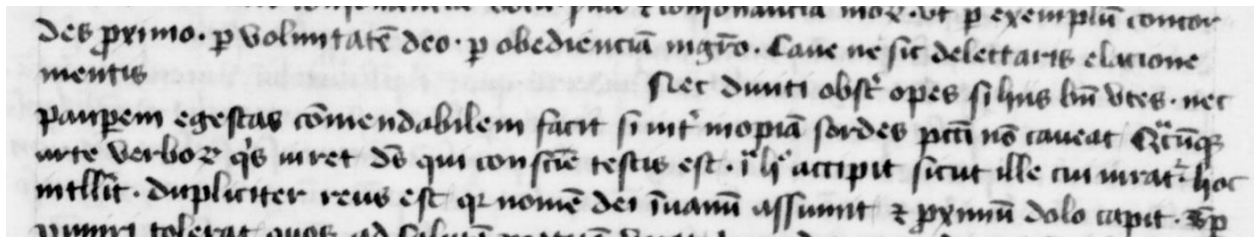 des ꝓximo · ꝑ voluntatē deo · ꝑ obedienciā mgr̄o · Caue ne sic delectaris elacione
mentis Nec diuiti obst̄ opes si hijs bn̄ vtes · nec
pauꝑem egestas cōmendabilem facit si int̄ inopiā sordes pcc̄i nō caueat Qͣcūqꝫ
arte verboꝝ qͥs iuret dn̄s qui conscīe testis est · ī hͦ accipit sicut ille cui iurat᷑ hoc
intllīt · dupliciter reus est qꝛ nomē dei ī vanū assumit ⁊ ꝓximū dolo capit ·